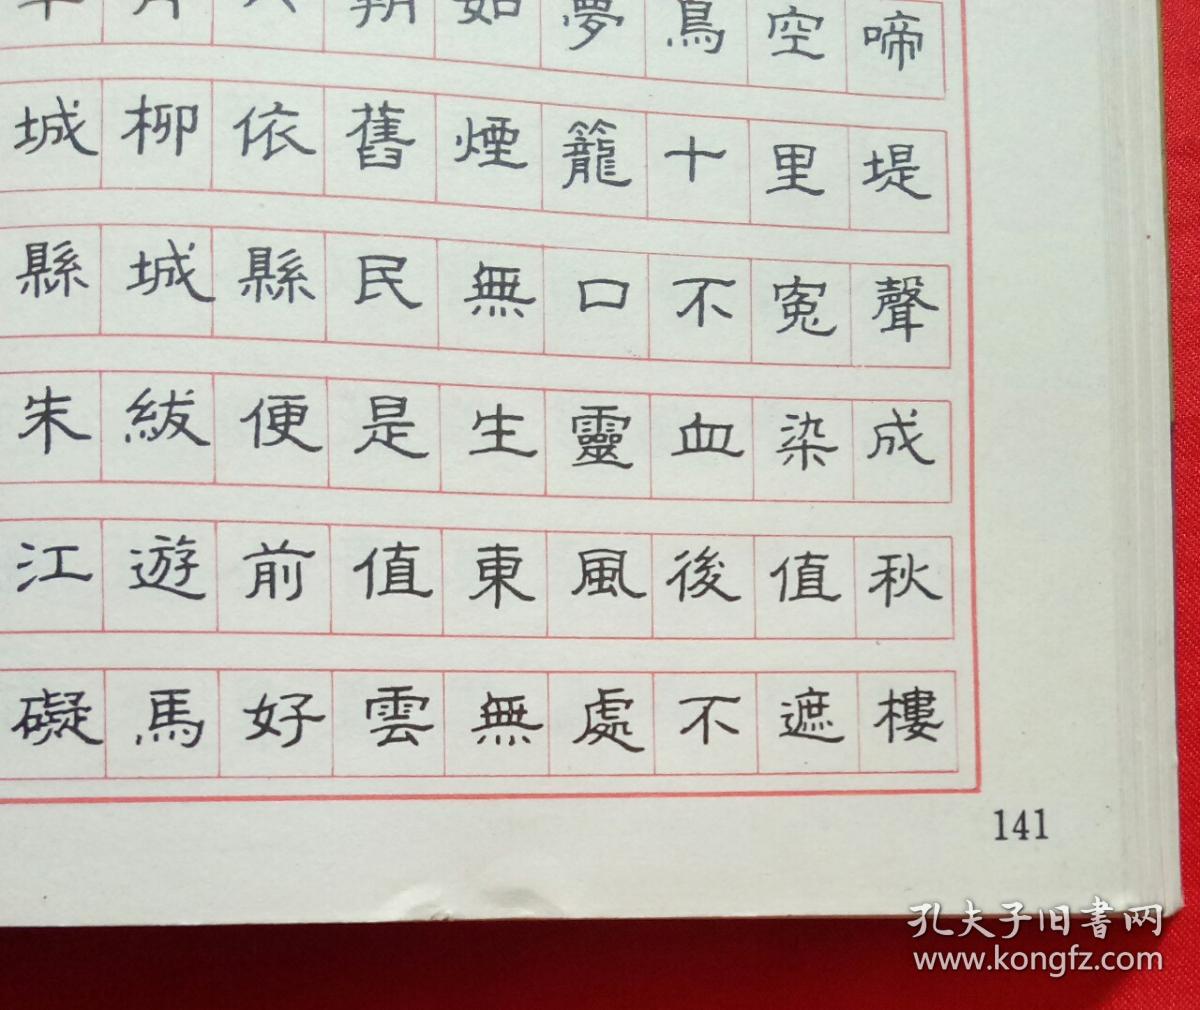 如夢鳥空啼
城柳依舊煙籠十里堤
縣城縣民無口不冤聲
朱紱便是生靈血染成
江遊前值東風後值秋
礙馬好雲無處不遮樓
141
孔夫子旧書网
www.kongfz.com